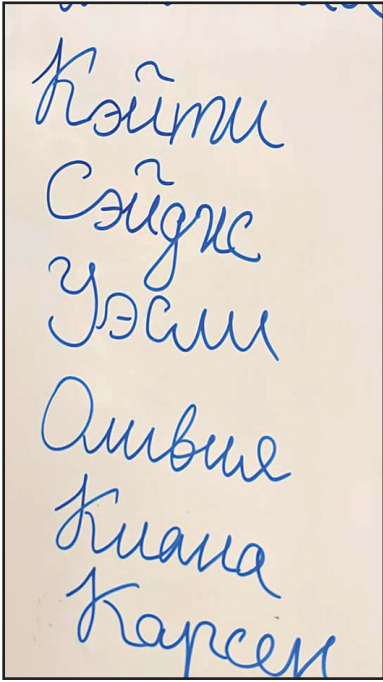 Кэйти
Сэйдж
Уэсли
Оливия
Киана
Карсен